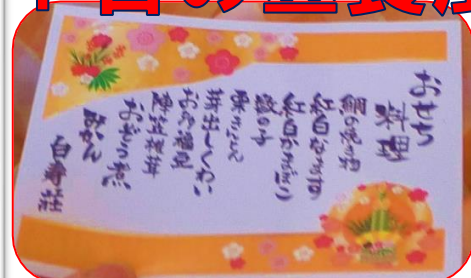 おせち
料理
鯛の焼き物
紅白なます
紅白かまぼこ
数の子
栗きんとん
芽出しくわい
お多福豆
陣笠椎茸
おぞう煮
みかん
白寿荘